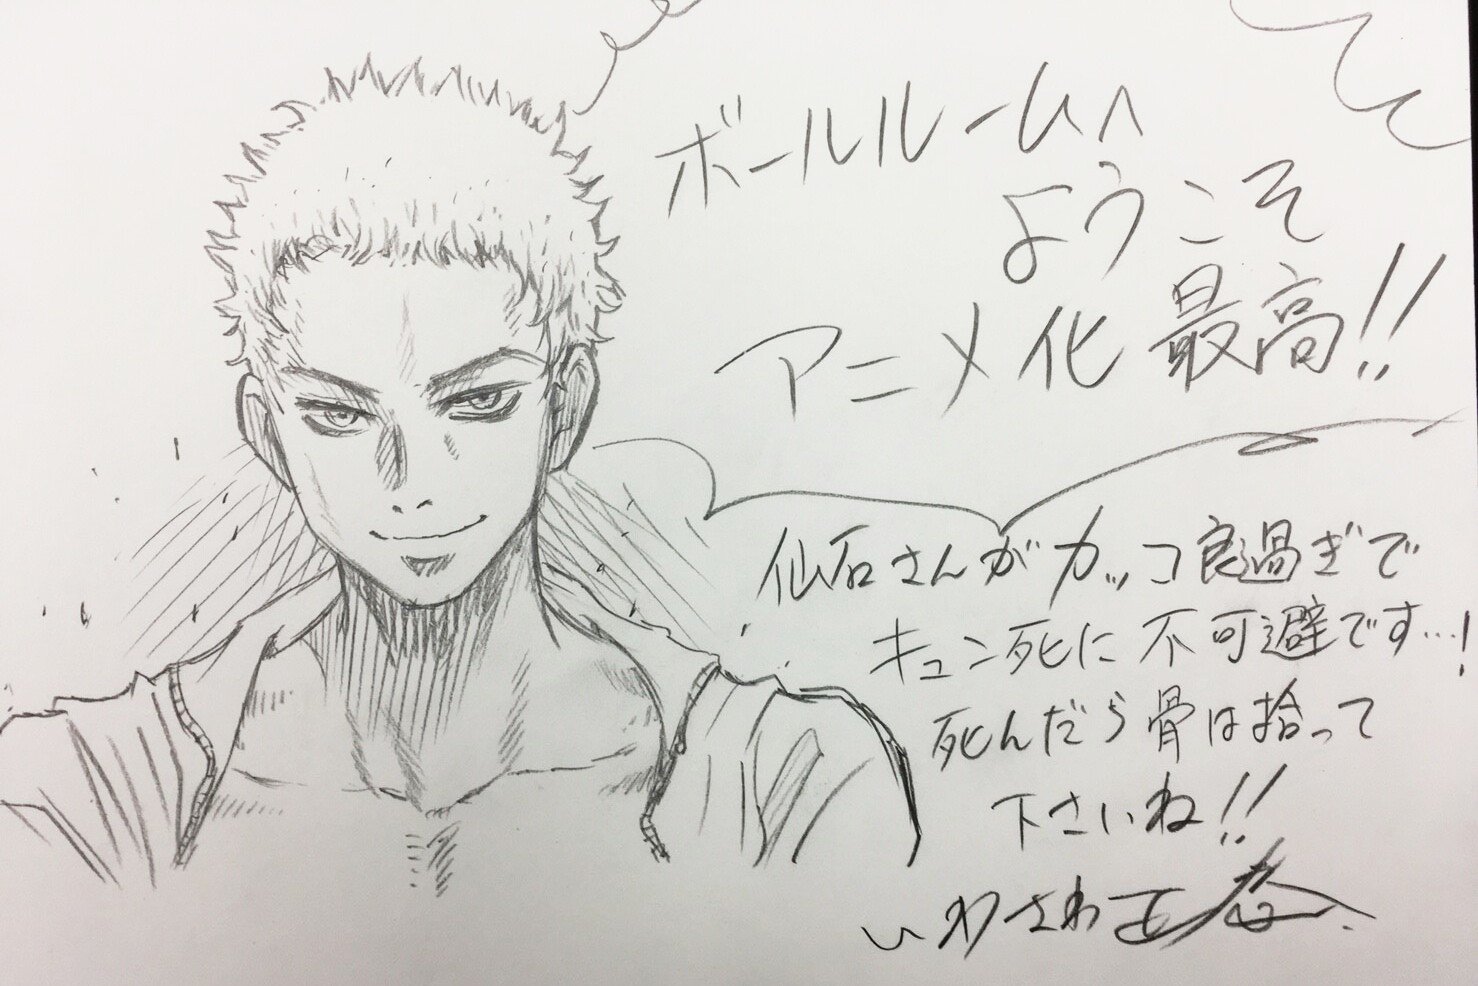 ボールルームへ
ようこそ
アニメ化最高!!
仙石さんがカッコ良過ぎで
キュン死に不可避です…!
死んだら骨は拾って
下さいね!!
いわさわ正泰